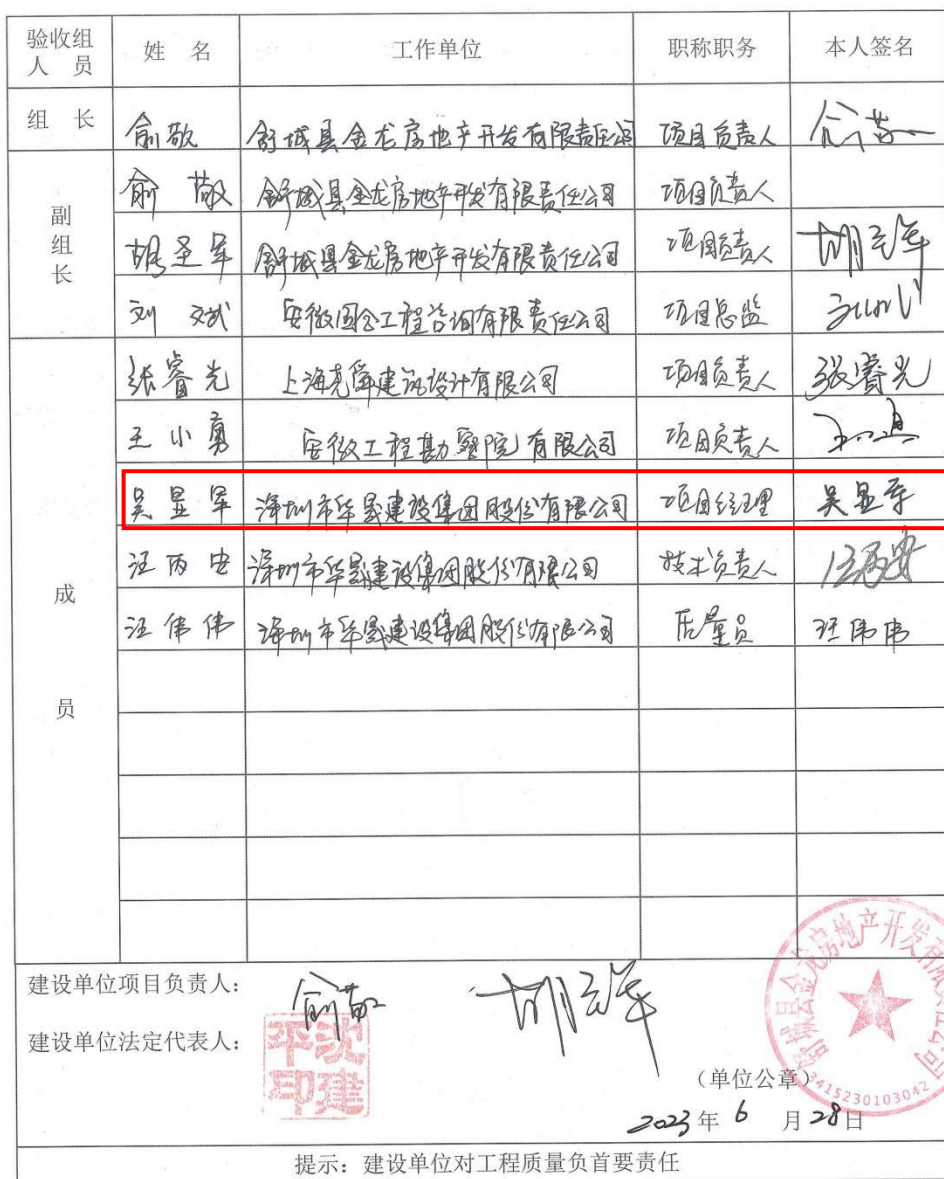 验收组人 员 姓 名 工作单位 职称职务 本人签名
组 长 俞敬 舒城县金龙房地产开发有限责任公司 项目负责人 俞敬
副组长 俞 敬 舒城县金龙房地产开发有限责任公司 项目负责人
胡圣军 舒城县金龙房地产开发有限责任公司 项目负责人
刘 斌 安徽国合工程咨询有限责任公司 项目总监
成员 张睿光 上海尧舜建筑设计有限公司 项目负责人 张睿光
王小勇 安徽工程勘察院有限公司 项目负责人
吴昱军 深圳市华晟建设集团股份有限公司 项目经理 吴昱军
汪丙安 深圳市华晟建设集团股份有限公司 技术负责人 汪丙安
汪伟伟 深圳市华晟建设集团股份有限公司 质量员 汪伟伟
建设单位项目负责人: 俞敬
建设单位法定代表人: 沈建平印
(单位公章)
舒城县金龙房地产开发有限责任公司
3415230103042
2023年 6 月28日
提示:建设单位对工程质量负首要责任